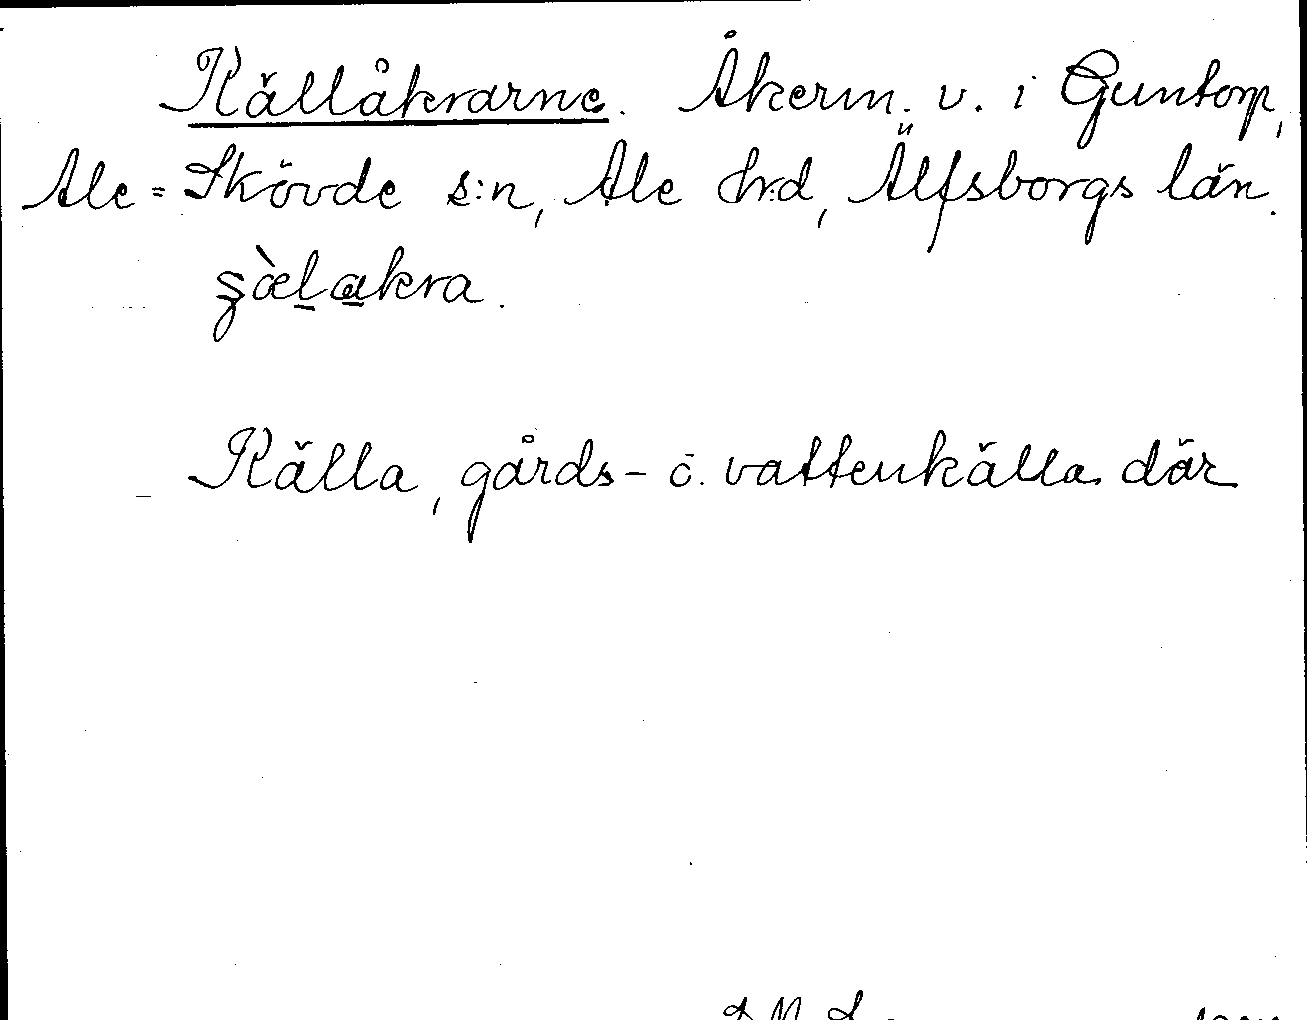 Källåkrarne. Åkerm. v. i Guntorp,
Ale=Skövde s:n, Ale hrd, Älfsborgs län.
Källa, gårds- o. vattenkälla där